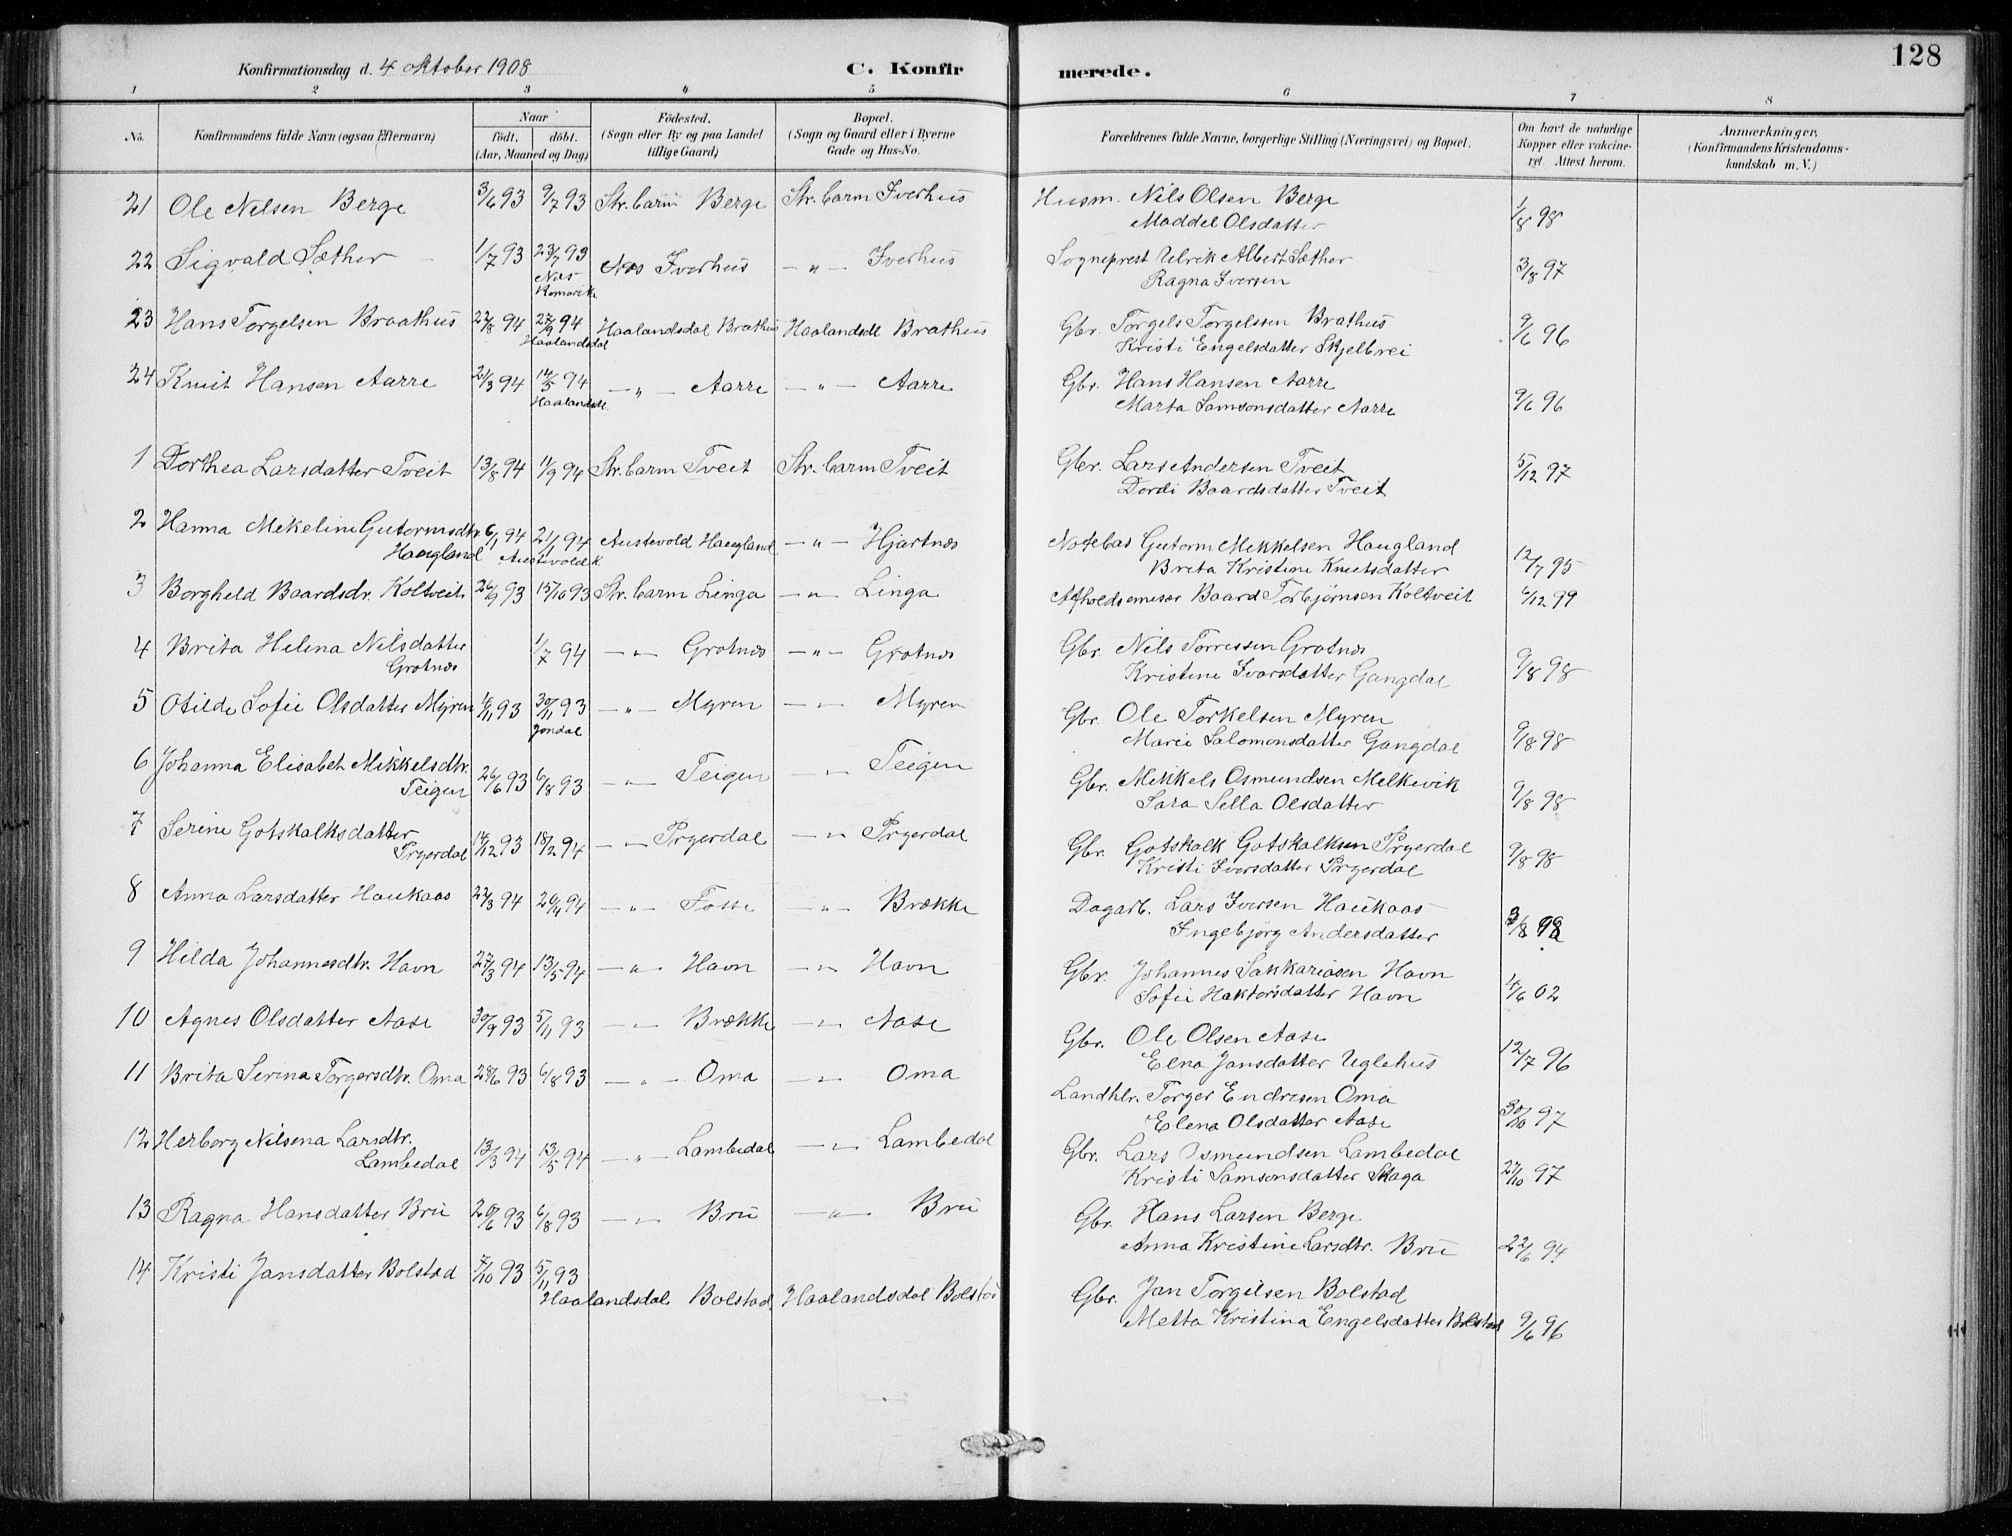 128
Konfirmationsdag d. 4 Oktober 1908 C. Konfirmerede.
1 2 3 4 5 6 7 8
No. Konfirmandens fulde Navn (ogsaa Efternavn) Naar födt. döbt. (Aar, Maaned og Dag) Födested. (Sogn eller By og paa Landet tillige Gaard) Bopæl. (Sogn og Gaard eller i Byerne Gade og Hus-No. Forældrenes fulde Navne, borgerlige Stilling (Næringsvei) og Bopæl. Om havt de naturlige Kopper eller vakcineret. Attest herom. Anmærkninger. (Konfirmandens Kristendomskundskab m. V.)
21 Ole Nilsen Berge 3/6 93 9/7 93 Str.barm Berge Str.barm Iverhus Husm. Nils Olsen Berge 1/8 98
Maddel Olsdatter
22 Sigvald Sæther 1/7 93 23/7 93 Næs Iverhus — " — Iverhus Sogneprest Ulrik Albert Sæther 3/8 97
Næs
Ragna Iversen
23 Hans Torgelsen Braathus 22/8 94 27/9 94 Haalandsdal Brathus Haalandsdl Brathus Gbr. Torgels Torgelssen Brathus 9/6 96
Haalandsdal
Kristi Engelsdatter Skjelbrei
24 Knut Hansen Aarre 21/3 94 14/5 94 — " — Aarre — " — Aarre Gbr. Hans Hansen Aarre 9/6 96
Haalandsdl.
Marta Samsonsdatter Aarre
1 Dorthea Larsdatter Tveit 13/8 94 11/9 94 Str.barm Tveit Str.barm Tveit Gbr. Lars Andersen Tveit 5/12 97
Dordi Baardsdatter Tveit
2 Hanna Mikeline Gutormsdtr. 6/1 94 21/1 94 Austevold Haugland — " — Hjartnæs Notebas Gutorm Mikkelsen Haugland 12/7 95
Haugland Austevold K
Brita Kristine Knutsdatter
3 Borghild Baardsdr. Koltveit 26/9 93 15/10 93 Str.barm Linga — " — Linga Afholdsemisær Baard Torbjørnsen Koltveit 6/12 99
4 Brita Helena Nilsdatter 1/7 94 — " — Grotnæs — " — Grotnæs Gbr. Nils Torressen Grotnæs 9/8 98
Grotnæs
Kristine Ivarsdatter Gangdal
5 Otilde Sofie Olsdatter Myren 16/11 93 30/11 93 — " — Myren — " — Myren Gbr. Ole Torkelsen Myren 9/8 98
Jondal
Marie Salomonsdatter Gangdal
6 Johanna Elisabeth Mikkelsdtr. 26/6 93 6/8 93 — " — Teigen — " — Teigen Gbr. Mikkels Osmundsen Melkevik 9/8 98
Teigen
Sara Sella Olsdatter
7 Serine Gotskalksdatter 14/12 93 18/2 94 — " — Pryerdal — " — Pryerdal Gbr. Gotskalk Gotskalksen Pryerdal 9/8 98
Pryerdal
Kristi Iversdatter Pryerdal
8 Anna Larsdatter Haukaas 22/3 94 26/4 94 — " — Fosse — " — Brække Dagarb. Lars Iversen Haukaas 3/8 98
Ingebjörg Andersdatter
9 Hilda Johannesdtr. Havn 27/3 94 13/5 94 — " — Havn — " — Havn Gbr. Johannes Sakkariasen Havn 4/6 02
Sofie Haktorsdatter Havn
10 Agnes Olsdatter Aase 30/9 93 5/11 93 — " — Brække — " — Aase Gbr. Ole Olsen Aase 12/7 96
Elna Jansdatter Uglehus
11 Brita Serina Torgersdtr. Oma 28/6 93 6/8 93 — " — Oma — " — Oma Landhlr. Torger Endresen Oma 30/10 97
Elena Olsdatter Aase
12 Herborg Nilsena Larsdtr. 13/3 94 13/5 94 — " — Lambedal — " — Lambedal Gbr. Lars Osmundsen Lambedal 27/10 97
Lambedal
Kristi Samsonsdatter Skaga
13 Ragna Hansdatter Bru 20/6 93 6/8 93 — " — Bru — " — Bru Gbr. Hans Larsen Berge 22/6 94
Anna Kristine Larsdtr. Bru
14 Kristi Jansdatter Bolstad 7/10 93 5/11 93 Haalandsdal Bolstad Haalandsdal Bolstad Gbr. Jan Torgilsen Bolstad 9/6 96
Metta Kristina Engelsdatter Bolstad